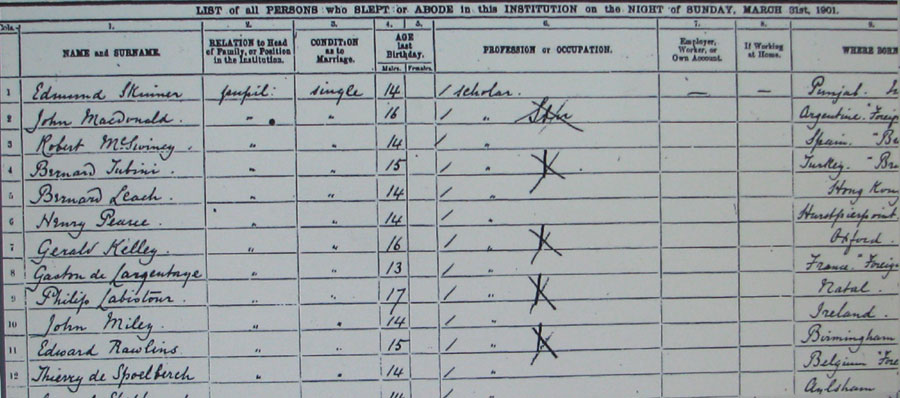 LIST of all PERSONS who SLEPT or ABODE in this INSTITUTION on the NIGHT of SUNDAY, MARCH 31st, 1901.
1. 2. 3. 4. 5. 6. 7. 8. 9.
NAME and SURNAME. RELATION to Head of Family, or Position in the Institution. CONDITION as to Marriage. AGE last Birthday. Males. Females. PROFESSION or OCCUPATION. Employer, Worker, or Own Account. If Working at Home. WHERE BORN
1 Edmund Skinner pupil: single 14 / scholar. — — Punjab.
2 John Macdonald. " " 16 / " Argentine. "Foreig
3 Robert McSwiney. " " 14 / " Spain. "Be
4 Bernard Tubini. " " 15 / " Turkey. "Bre
5 Bernard Leach. " " 14 / " Hong Kong
6 Henry Pearce. " " 14 / " Hurstpierpoint
7 Gerald Kelley. " " 16 / " Oxford.
8 Gaston de Largentaye " " 13 / " France. "Foreig
9 Philip Labistour. " " 17 / " Natal.
10 John Miley. " " 14 / " Ireland.
11 Edward Rawlins " " 15 / " Birmingham
12 Thierry de Spoelberch " " 14 / " Belgium "Fore
14 Aylsham